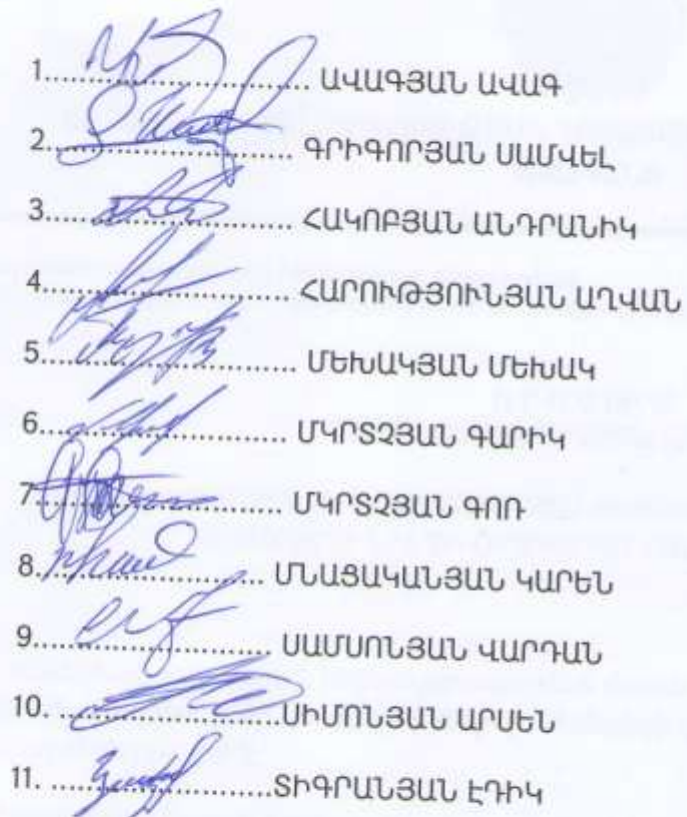 1............................ ԱՎԱԳՅԱՆ ԱՎԱԳ
2............................ ԳՐԻԳՈՐՅԱՆ ՍԱՄՎԵԼ
3............................ ՀԱԿՈԲՅԱՆ ԱՆԴՐԱՆԻԿ
4............................ ՀԱՐՈՒԹՅՈՒՆՅԱՆ ԱՂՎԱՆ
5............................ ՄԵԽԱԿՅԱՆ ՄԵԽԱԿ
6............................ ՄԿՐՏՉՅԱՆ ԳԱՐԻԿ
7............................ ՄԿՐՏՉՅԱՆ ԳՈՌ
8............................ ՄՆԱՑԱԿԱՆՅԱՆ ԿԱՐԵՆ
9............................ ՍԱՄՍՈՆՅԱՆ ՎԱՐԴԱՆ
10. ............................ՍԻՄՈՆՅԱՆ ԱՐՍԵՆ
11. ............................ՏԻԳՐԱՆՅԱՆ ԷԴԻԿ